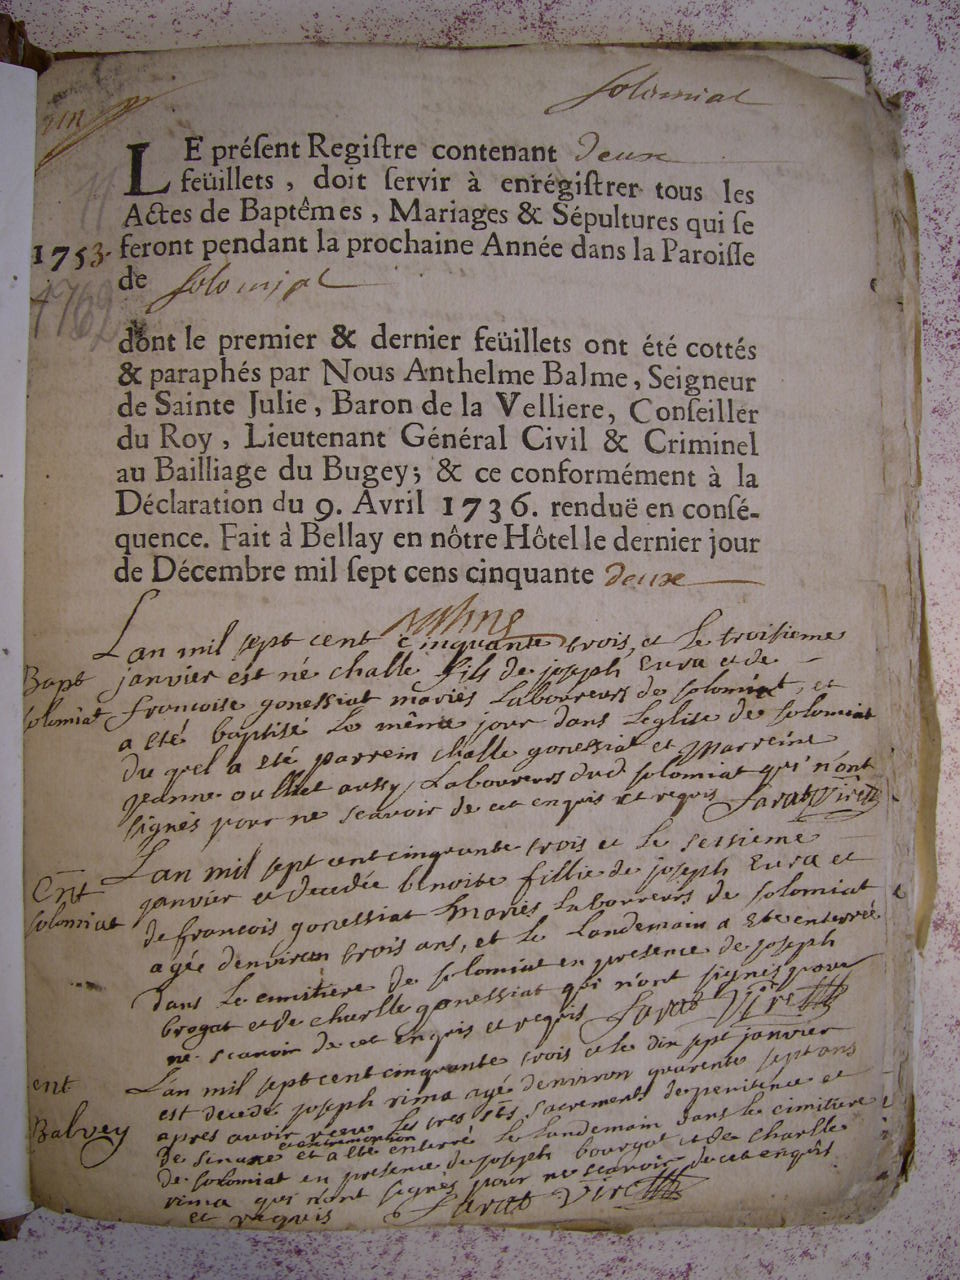 Solomiat
LE présent Registre contenant deux
feüillets, doit servir à enrégistrer tous les
Actes de Baptêmes, Mariages & Sépultures qui se
1753. feront pendant la prochaine Année dans la Paroisse
de Solomiat
1762
dont le premier & dernier feüillets ont été cottés
& paraphés par Nous Anthelme Balme, Seigneur
de Sainte Julie, Baron de la Velliere, Conseiller
du Roy, Lieutenant Général Civil & Criminel
au Bailliage du Bugey; & ce conformément à la
Déclaration du 9. Avril 1736. renduë en consé-
quence. Fait à Bellay en nôtre Hôtel le dernier jour
de Décembre mil sept cens cinquante deux
Lan mil sept cent cinquante trois, et le troisieme
Bapt janvier est né challe fils de joseph Eura et de
solomiat francoise gonessiat mariés Laboureurs de solomiat, et
a eté baptisé le même jour dans Leglise de solomiat
du quel a eté parrein challe gonessiat et marreine
jeanne oulliet aussy Laboureurs dud solomiat qui n'ont
signés pour ne scavoir de cet enquis et requis Sarat Vire
Lan mil sept cent cinquante trois et le sessieme
Ent janvier et decedée benoite fillie de joseph Eura et
solomiat de francois gonessiat mariés Laboureurs de solomiat
agée denviron trois ans, et le Landemain a ete enterrée
dans le cimitiere de solomiat en presence de joseph
brogat et de charlle gonessiat qui n'ont signés pour
ne scavoir de cet enquis et requis Sarat Vire
ent L'an mil sept cent cinquante trois et le dix sept janvier
est decedé joseph rima agé denviron quarente sept ans
Balvey apres avoir receu les tres sts sacrements de penitence et
de et a ete enterré le Landemain dans le cimitiere
de solomiat en presence de joseph bourgat et de charlle
rima qui n'ont signés pour ne scavoir de cet enquis
et requis Sarat Vire